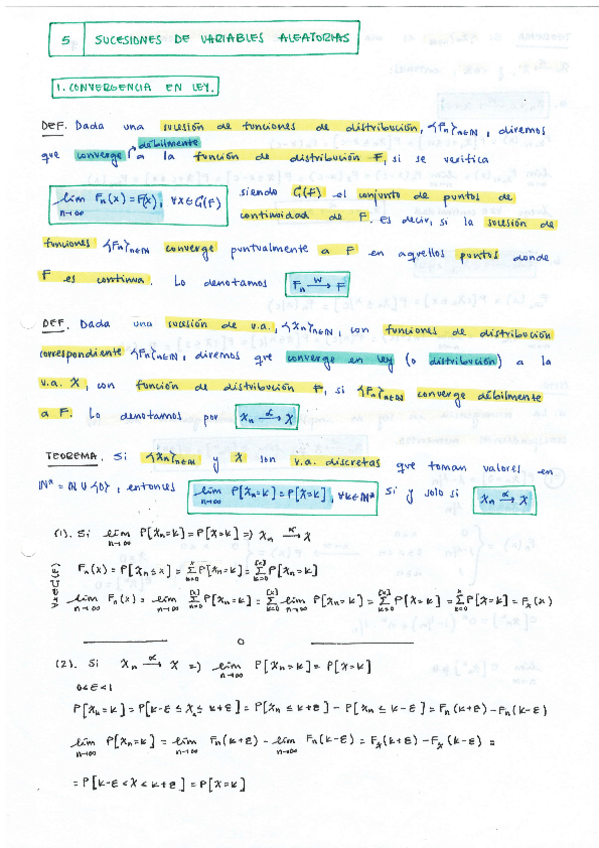 5 SUCESIONES DE VARIABLES ALEATORIAS
1. CONVERGENCIA EN LEY.
DEF. Dada una sucesión de funciones de distribución, {Fn}n∈ℕ, diremos
débilmente
que converge a la función de distribución F, si se verifica
lim n→∞ Fn(x) = F(x), ∀x∈C(F) siendo C(F) el conjunto de puntos de
continuidad de F. Es decir, si la sucesión de
funciones {Fn}n∈ℕ converge puntualmente a F en aquellos puntos donde
F es continua. Lo denotamos Fn –w→ F
DEF. Dada una sucesión de v.a., {Xn}n∈ℕ, con funciones de distribución
correspondiente {Fn}n∈ℕ, diremos que converge en ley (o distribución) a la
v.a. X, con función de distribución F, si {Fn}n∈ℕ converge débilmente
a F. Lo denotamos por Xn –α→ X
TEOREMA. Si {Xn}n∈ℕ y X son v.a. discretas que toman valores en
ℕ* = ℕ ∪ {0}, entonces lim n→∞ P[Xn=k] = P[X=k], ∀k∈ℕ* si y solo si Xn –α→ X
(1). Si lim n→∞ P[Xn=k] = P[X=k] => Xn –α→ X
∀x∈C(F)
Fn(x) = P[Xn≤x] = Σ k=0 x P[Xn=k] = Σ k=0 [x] P[Xn=k]
lim n→∞ Fn(x) = lim n→∞ Σ k=0 [x] P[Xn=k] = Σ k=0 [x] lim n→∞ P[Xn=k] = Σ k=0 [x] P[X=k] = Σ k=0 x P[X=k] = Fx(x)
o
(2). Si Xn –α→ X => lim n→∞ P[Xn=k] = P[X=k]
0<ε<1
P[Xn=k] = P[k-ε ≤ Xn ≤ k+ε] = P[Xn ≤ k+ε] - P[Xn ≤ k-ε] = Fn(k+ε) - Fn(k-ε)
lim n→∞ P[Xn=k] = lim n→∞ Fn(k+ε) - lim n→∞ Fn(k-ε) = Fx(k+ε) - Fx(k-ε) =
= P[k-ε < X < k+ε] = P[X=k]